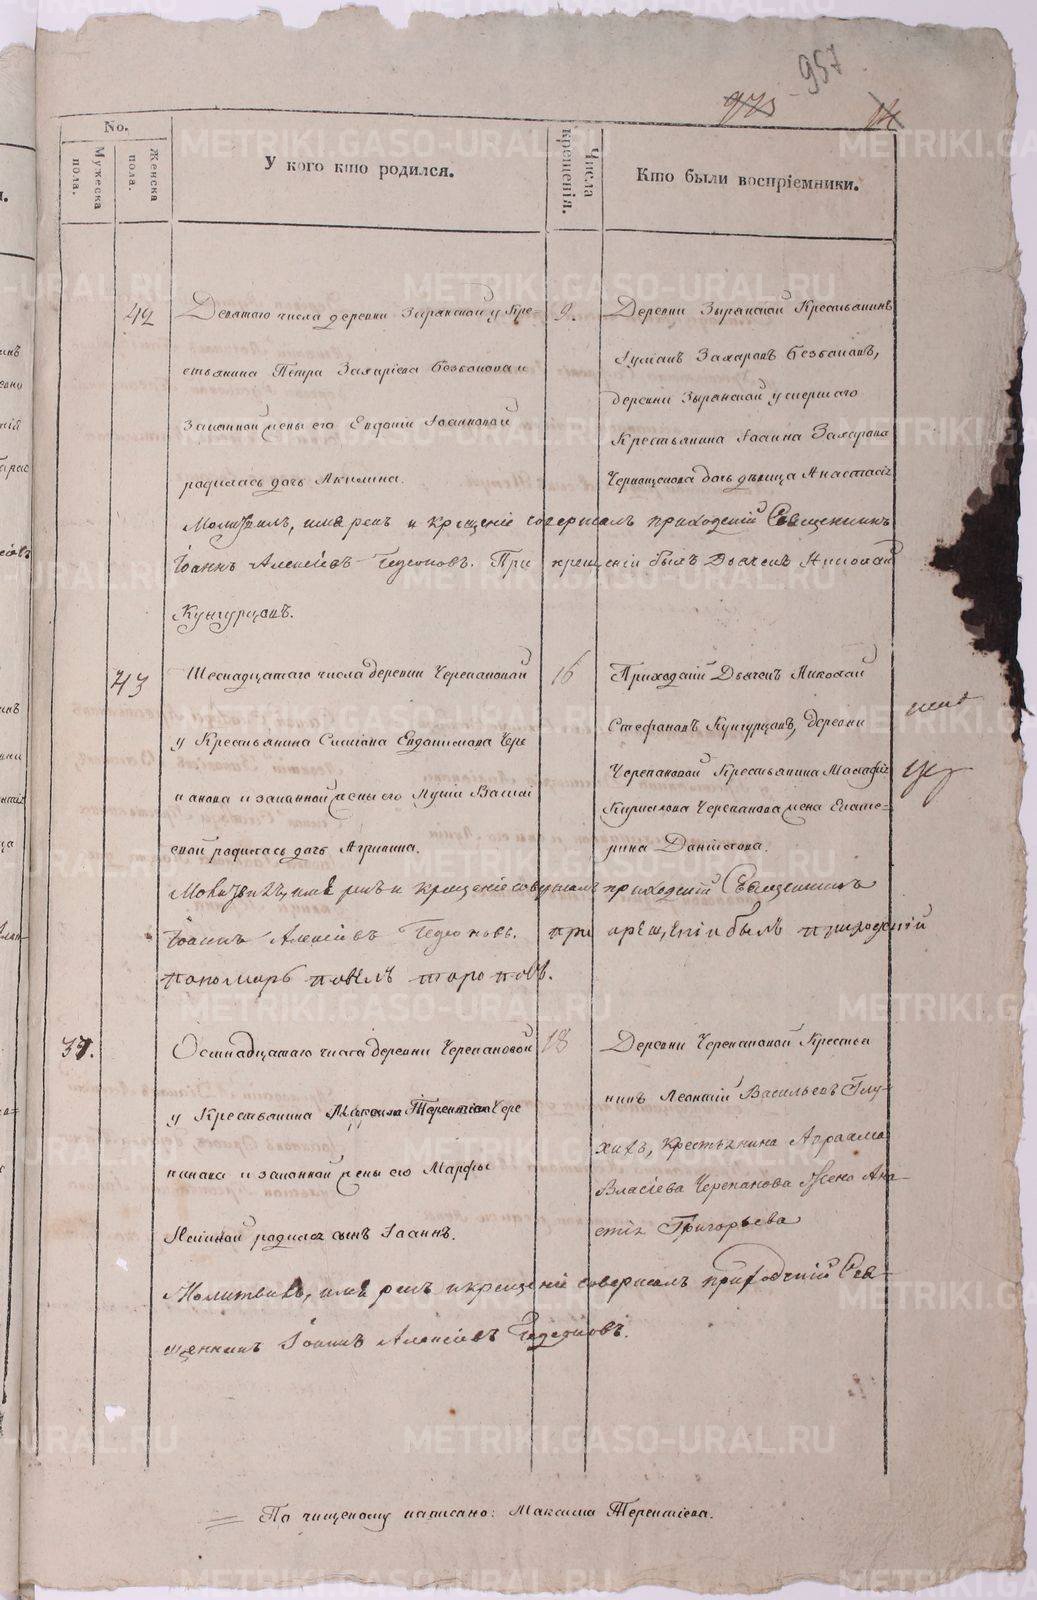 957
973
14
No.
Мужеска пола.
Женска пола.
У кого кто родился.
Числа крещенія.
Кто были воспріемники.
42
Девятаго числа деревни Зырянской у Кре-
стьянина Петра Захаріева Безбопова и
законной жены его Евдокіи Іоанновой
родилась дочь Акилина.
9.
Деревни Зырянской Крестьянинъ
Захаровъ
деревни Зырянской умершаго
Крестьянина Іоанна Захарова
дочь дѣвица Анастасія
Молитвилъ, имя рекъ и крещеніе совершалъ приходскій Священникъ
Іоаннъ Алексіевъ Гедеоновъ. При крещеніи былъ Дьячекъ Николай
Кунгурцовъ.
43
Шеснадцатаго числа деревни Черепановой
у Крестьянина Симіона Чере
панова и законной жены его
родилась дочь Агрипина.
16
Приходскій Дьячекъ Николай
Стефановъ Кунгурцовъ, деревни
Черепановой Крестьянина
Кирилова Черепанова жена Екате-
рина Данилова.
Молитвилъ, имя рекъ и крещеніе совершалъ приходскій Священникъ
Іоаннъ Алексіевъ Гедеоновъ. при крещеніи былъ приходскій
пономарь павелъ тороповъ.
37.
Осмнадцатаго числа деревни Черепановой
у Крестьянина Максима Терентіева Чере
панова и законной жены его Марфы
родился сынъ Іоаннъ.
18
Деревни Черепановой Крестья
нинъ Леонтій Васильевъ Глу-
хихъ, крестьянина Авраама
Власіева Черепанова Жена Ана-
стасія Григорьева
Молитвилъ, имя рекъ и крещеніе совершалъ приходскій Свя-
щенникъ Іоаннъ Алексіевъ Гедеоновъ.
По чищеному написано: Максима Терентіева.
METRIKI.GASO-URAL.RU